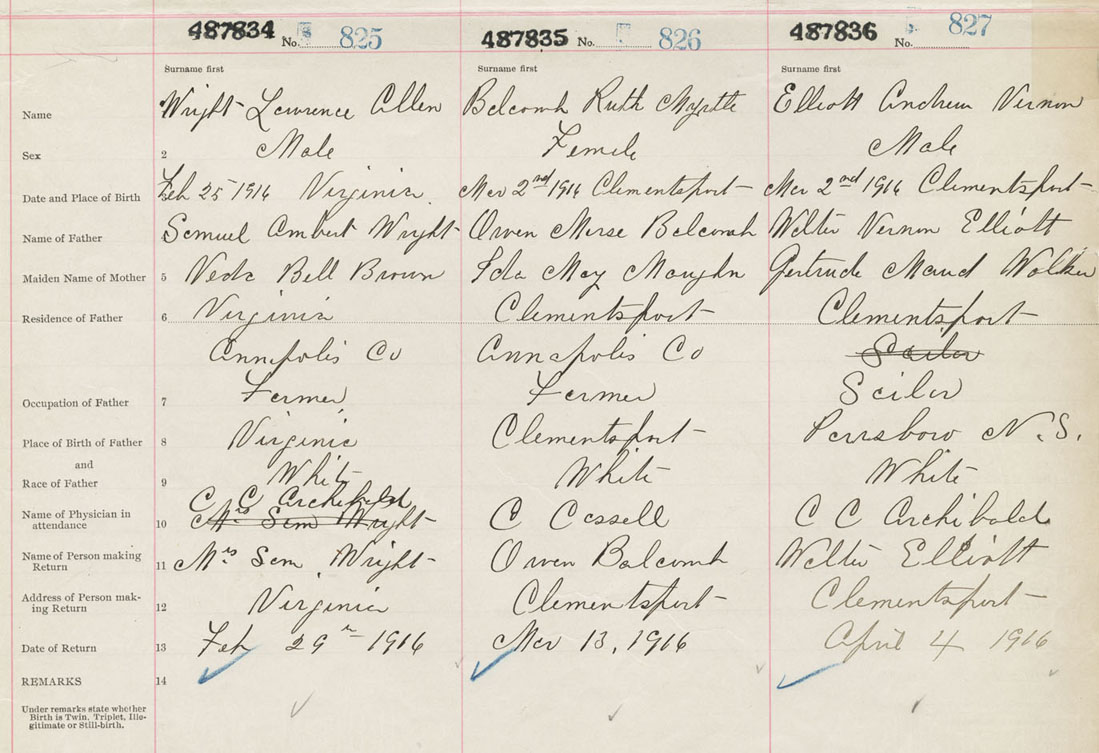 487834 No. 825 487835 No. 826 487836 No. 827
Surname first Surname first Surname first
Name Wright Lawrence Allen Balcomb Ruth Myrtle Elliott Andrew Vernon
Sex 2 Male Female Male
Date and Place of Birth Feb 25 1916 Virginia. Mar 2nd 1916 Clementsport Mar 2nd 1916 Clementsport
Name of Father Samuel Ambert Wright Owen Morse Balcomb Walter Vernon Elliott
Maiden Name of Mother 5 Veda Bell Brown Ida May Gertrude Maud
Residence of Father 6 Virginia Clementsport Clementsport
Annapolis Co Annapolis Co Sailor
Occupation of Father 7 Farmer Farmer Sailor
Place of Birth of Father 8 Virginia Clementsport Parrsboro N.S.
and
Race of Father 9 White White White
C C Archibald
Name of Physician in
attendance 10 Mrs Sam Wright C Cassell C C Archibald
Name of Person making
Return 11 Mrs Sam Wright Owen Balcomb Walter Elliott
Address of Person mak-
ing Return 12 Virginia Clementsport Clementsport
Date of Return 13 Feb 29 1916 Mar 13, 1916 April 4 1916
REMARKS 14
Under remarks state whether
Birth is Twin, Triplet, Ille-
gitimate or Still-birth.